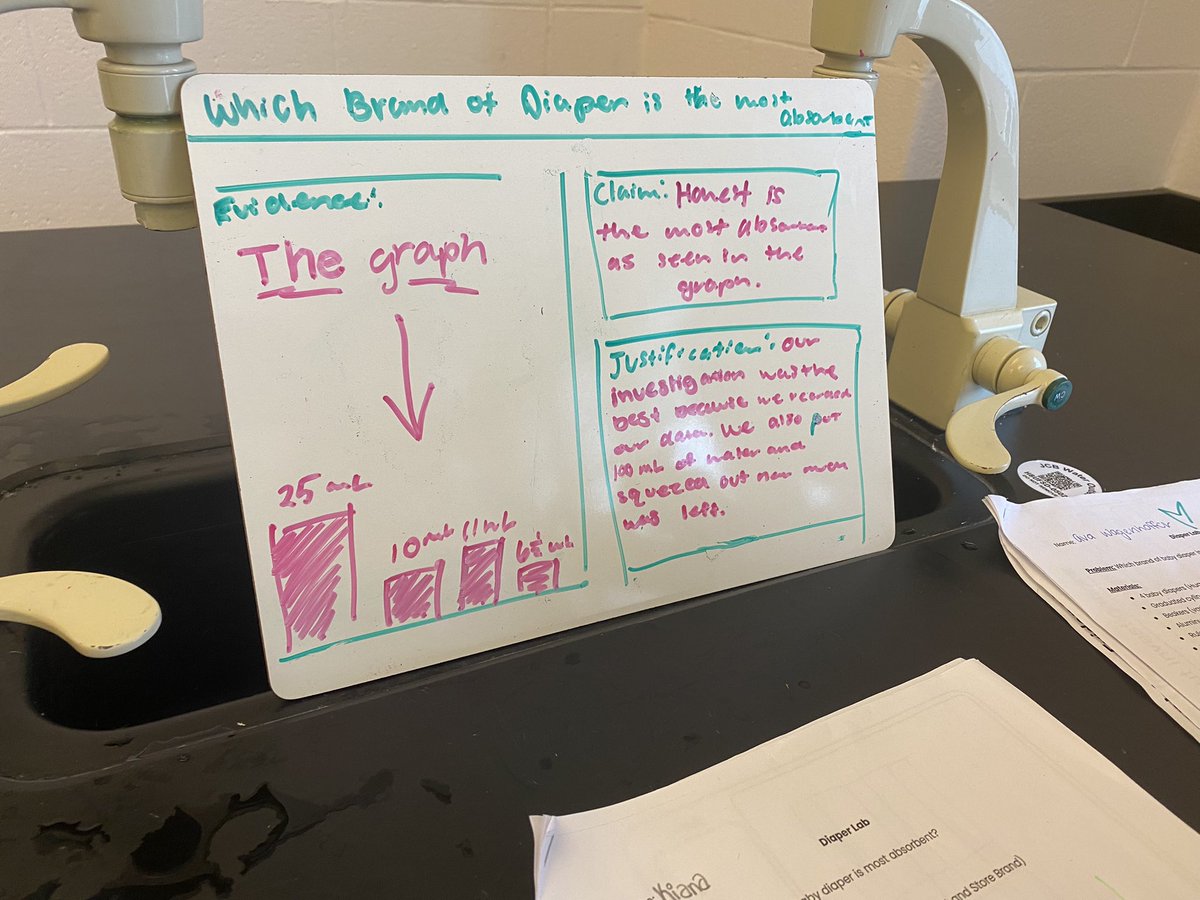 Which Brand of Diaper is the most
absorbent
Evidence:
The graph
25 mL
10 mL 11 mL
mL
Claim: Honest is
the most absorbent
as seen in the
graph.
Justification: our
investigation was the
best because we recorded
our data. We also put
100 mL of water and
squeezed out how much
was left.
JCB Water
Name: Ava
Diaper Lab
Problem: Which brand of baby diaper
Materials:
• 4 baby diapers
• Graduated
• Beakers
•
•
Diaper Lab
Kiana
baby diaper is most absorbent?
and Store Brand)